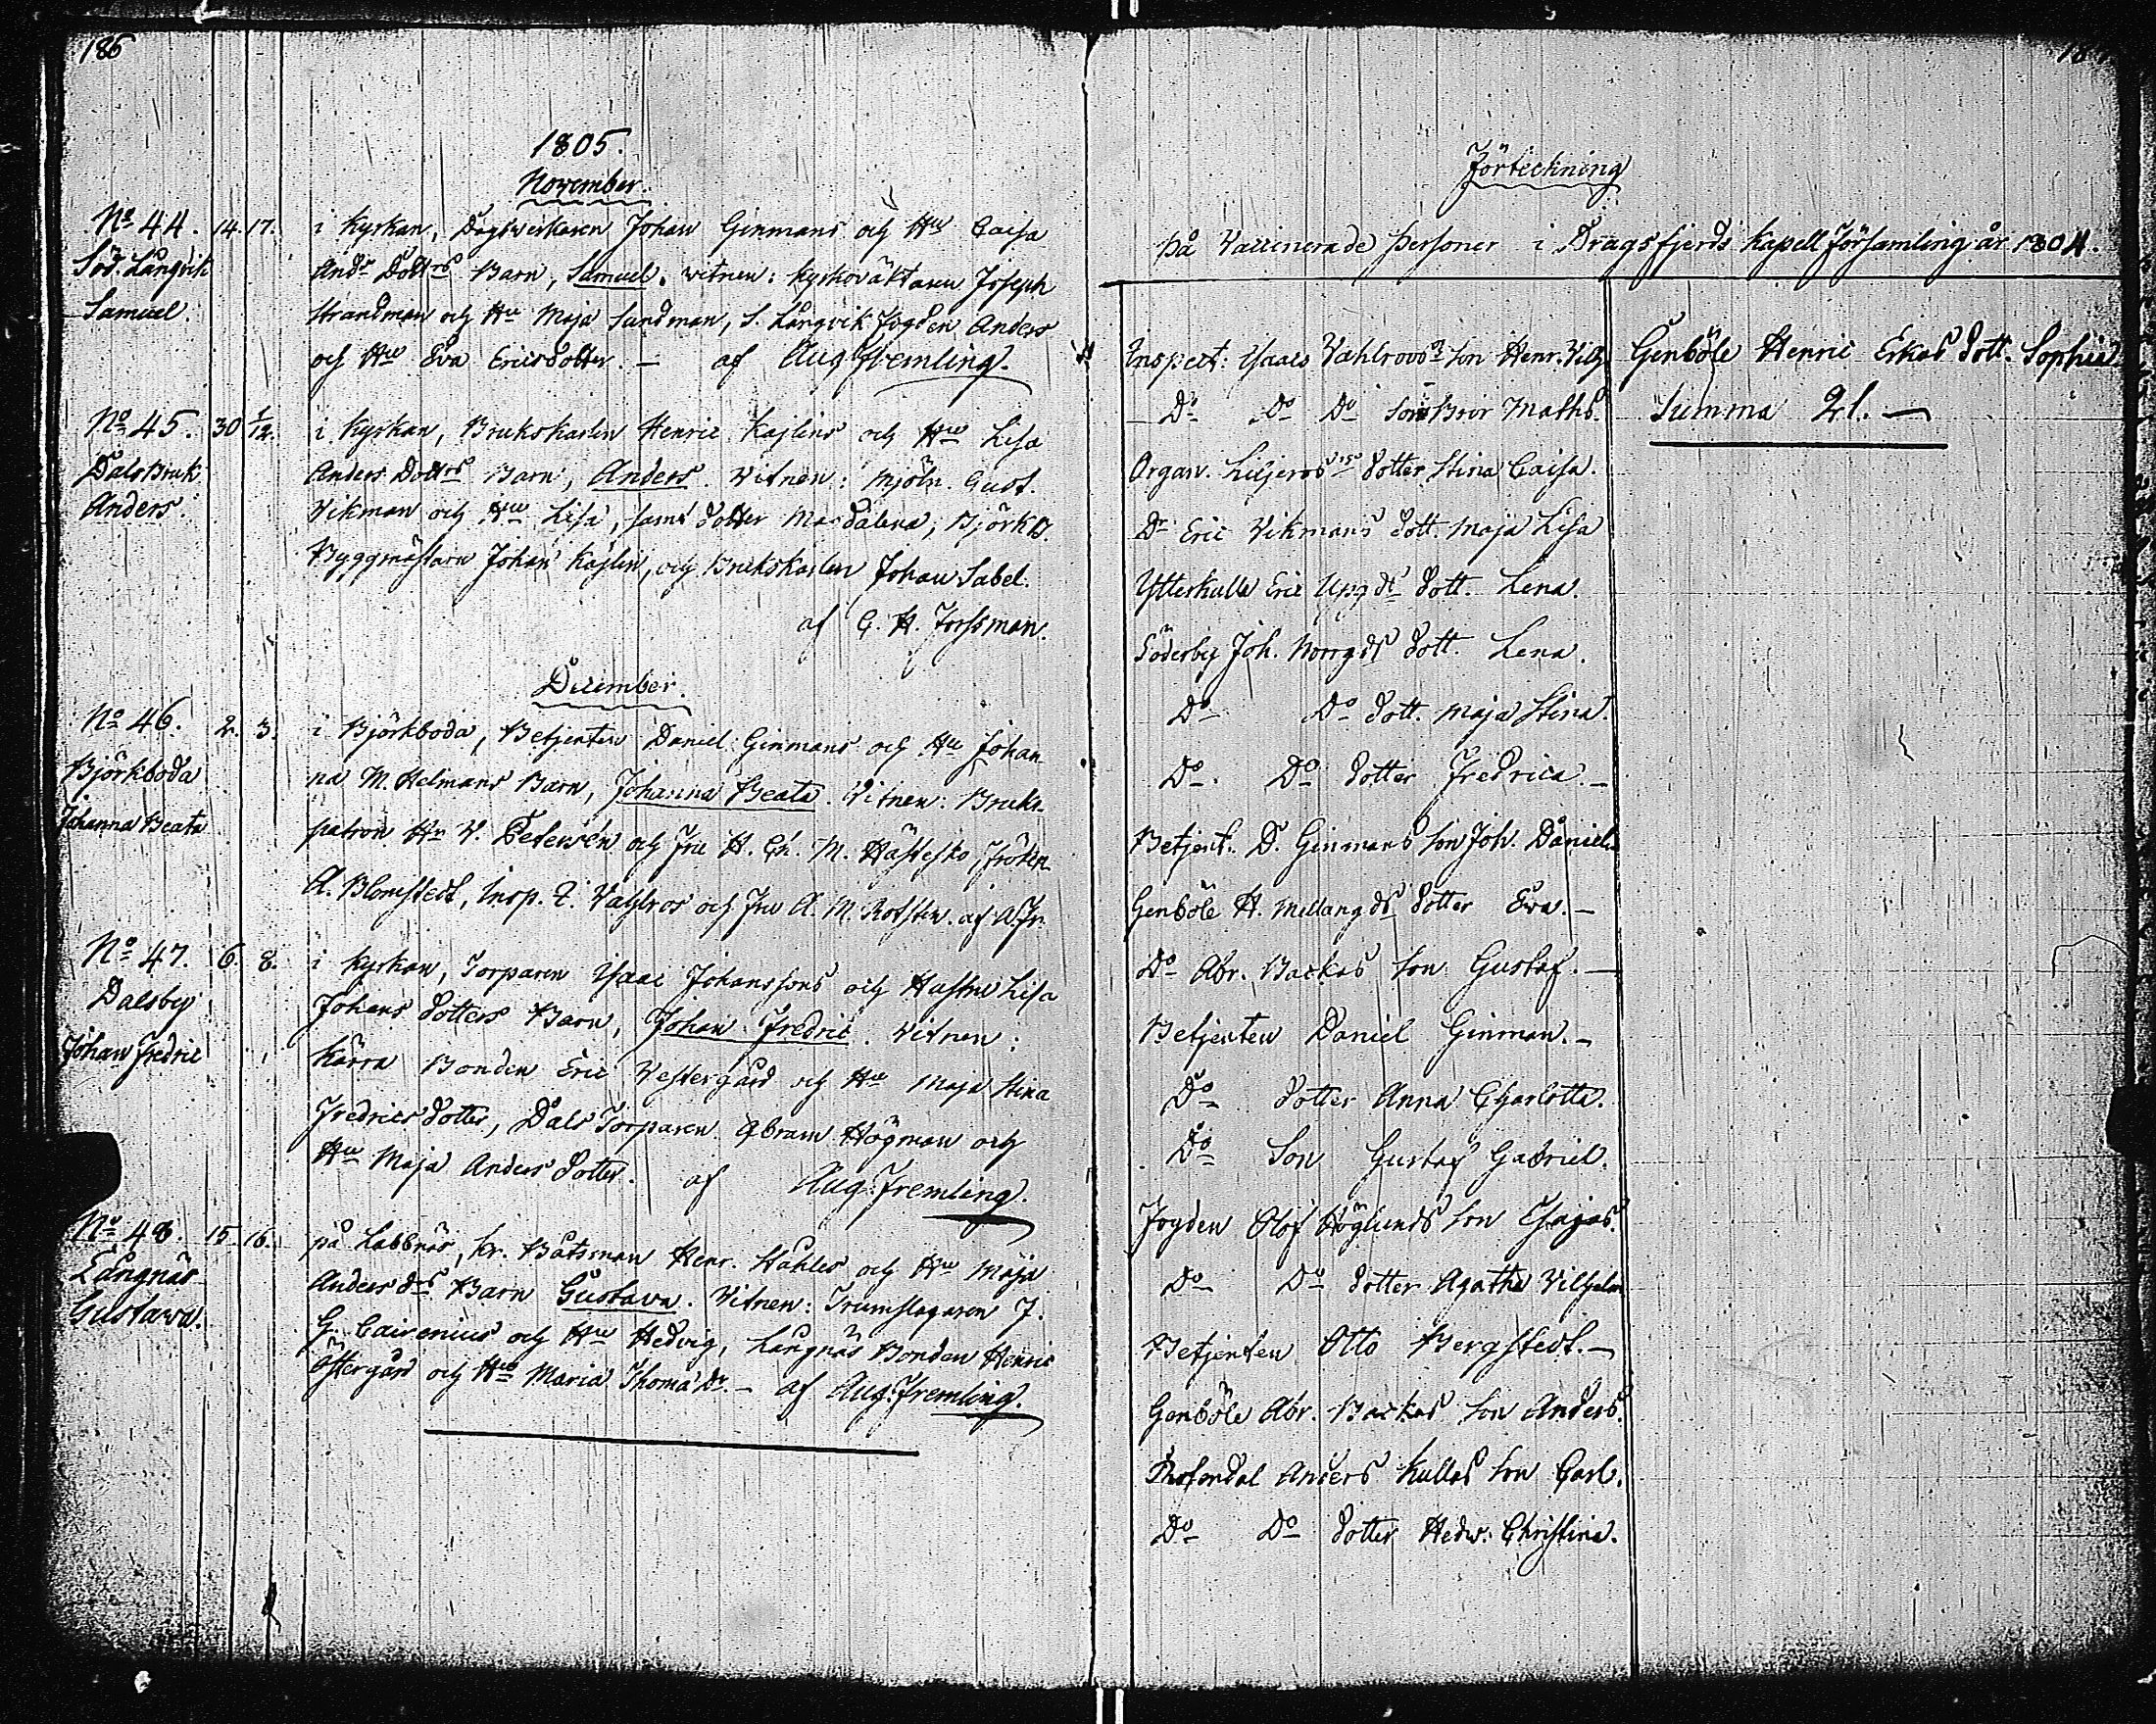 186
1805.
November.
No 44. 14. 17. i Kyrkan, Dagsverkaren Johan Ginmans och Hus Caisa
Söd. Långvik Andrs Dottrs Barn, Samuel. vitnen: Kyrkoväktaren Joseph
Samuel. Strandman och Hu Maja Sandman, S. Långvik Fogden Anders
och Hu Eva Ericsdotter. — af Aug. Fremling.
No 45. 30 1/12. i Kyrkan, Brukskarlen Henric Kajlins och Hu Lisa
Dalsbruk Anders Dottrs Barn, Anders. Vitnen: Mjöln. Gust.
Anders. Vikman och Hu Lisa, samt dotter Magdalena, Björkb.
Byggmästaren Johan Kajlin, och Brukskarlen Johan Sabel.
af G. H. Forssman.
December.
No 46. 2. 3. i Björkboda, Betjenten Daniel Ginmans och Hu Johan
Björkboda na M. Helmans Barn, Johanna Beata. Vitnen: Bruks-
Johanna Beata patron Hr V. Petersén och Fru H. Ch. M. Hästesko, Fröken
A. Blomstedt, Insp. I. Vahlros och Fru A. M. Rotsten. af A. Fr.
No 47. 6. 8. i Kyrkan, Torparen Isaac Johanssons och Hustru Lisa
Dalsby Johans Dotters Barn, Johan Fredric. Vitnen:
Johan Fredric Kärra Bonden Eric Vestergård och Hu Maja Stina
Fredrics Dotter, Dals Torparen Abram Högman och
Hu Maja Anders Dotter. af Aug. Fremling.
No 48. 15. 16. på Labbnäs, kr. Båtsman Henr. Håhles och Hu Maja
Långnäs Anders drs Barn Gustava. Vitnen: Trumslagaren J.
Gustava. G. Cairenius och Hu Hedvig, Långnäs Bonden Henric
Östergård och Hu Maria Thoma dr. — af Aug. Fremling.
Förteckning
på Vaccinerade personer i Dragsfjerds Kapell Församling år 1804.
Inspect: Isaacs Vahlroos son Henr. Vilh.
Do Do Do Son Bror Maths.
Organ. Liljeros dotter Stina Caisa.
Dr Eric Vikmans dott. Maja Lisa
Ytterkulla Eric Upgds Dott. Lena.
Söderby Joh. Norrgds Dott. Lena.
Do Do Dott. Maja Stina.
Do. Do Dotter Fredrica. —
Betjent. D. Ginmans son Joh. Daniel.
Genböle H. Mellangds Dotter Eva. —
Do Abr. Backas son Gustaf. —
Betjenten Daniel Ginman. —
Do Dotter Anna Charlotta.
Do Son Gustaf Gabriel.
Fogden Olof Höglunds son Esajas.
Do Do Dotter Agatha Vilhelm
Betjenten Otto Bergstedt. —
Genböle Abr. Backas son Anders.
Rosendal Anders Kullas son Carl.
Do Do Dotter Hedv. Christina.
Genböle Henric Erkas Dott. Sophia
Summa 21. —